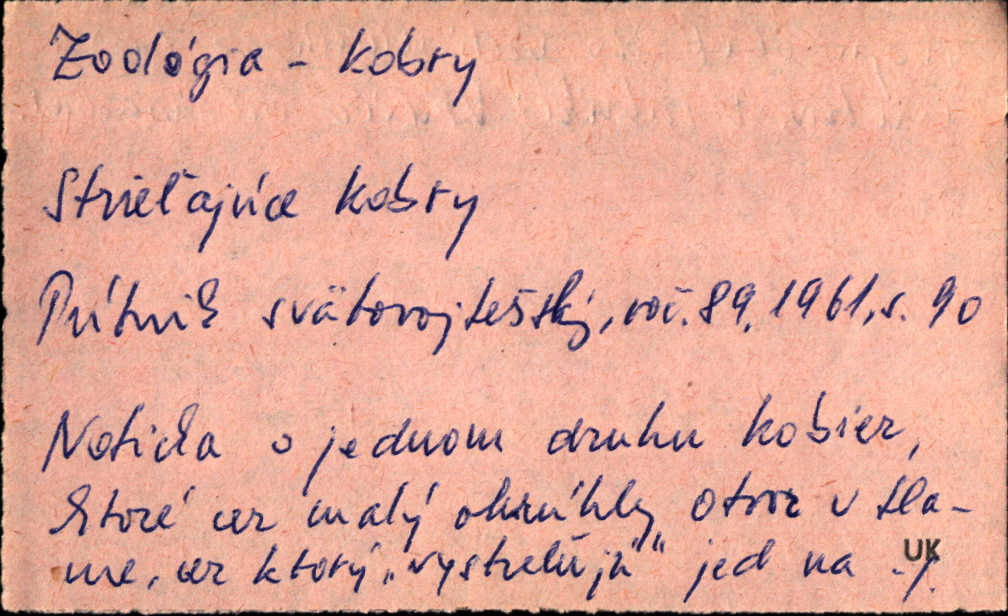 Zoológia - kobry
Strieľajúce kobry
Pútnik svätovojtešský, roč. 89, 1961, s. 90
Noticka o jednom druhu kobier,
ktoré cez malý okrúhly otvor v tla-
me, cez ktorý „vystreľujú" jed na ./.
UK